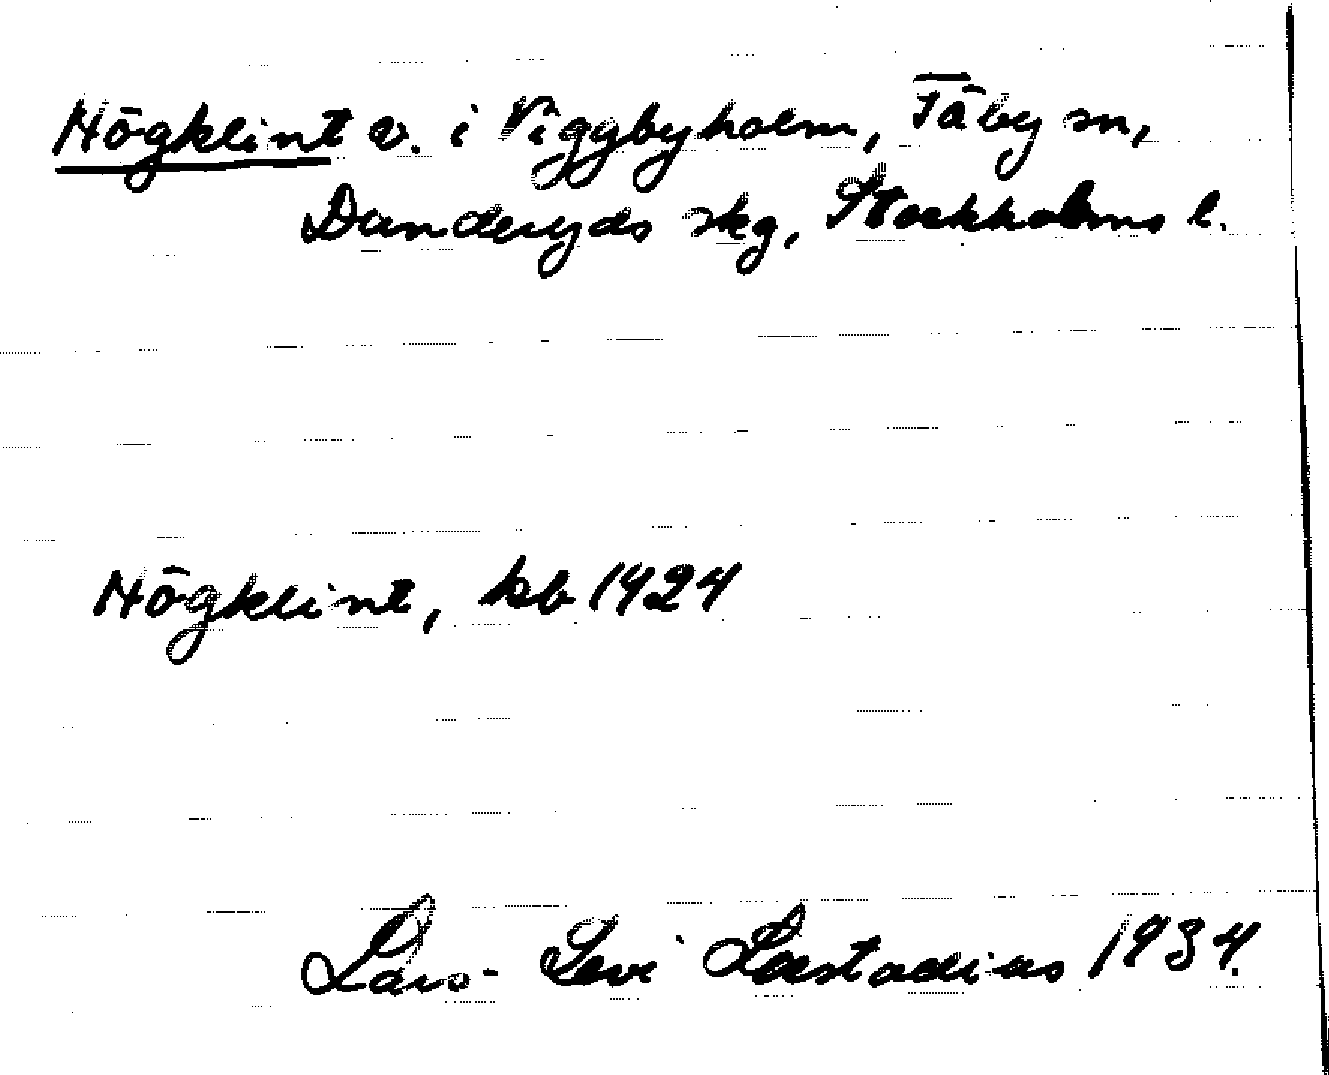 Högklint v. i Viggbyholm, Täby sn,
Danderyds skg, Stockholms l.
Högklint, kb 1924
Lars-Levi Læstadius 1934.